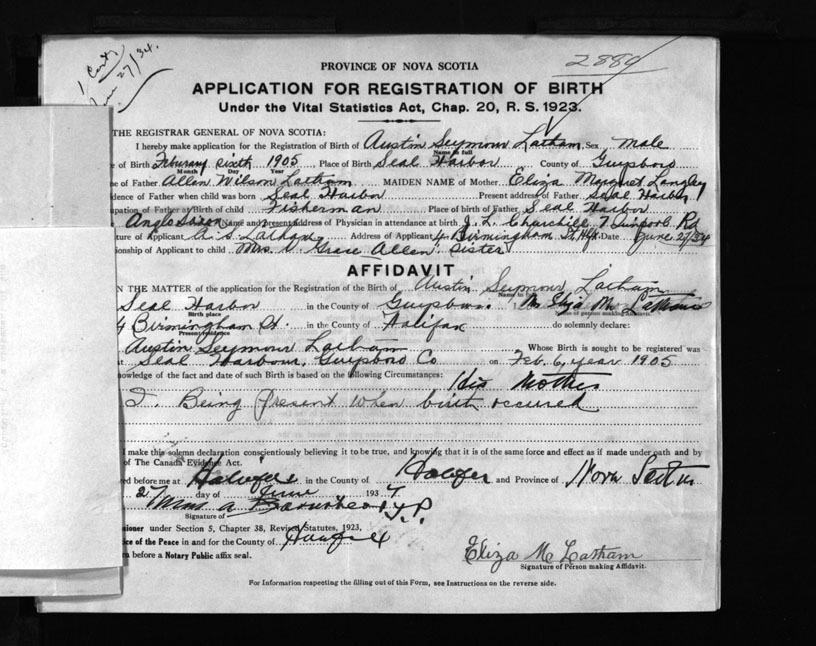 1 Cert
June 27/34.
2880
PROVINCE OF NOVA SCOTIA
APPLICATION FOR REGISTRATION OF BIRTH
Under the Vital Statistics Act, Chap. 20, R. S. 1923.
THE REGISTRAR GENERAL OF NOVA SCOTIA:
I hereby make application for the Registration of Birth of Austin Seymour Latham Sex Male
Name in full
e of Birth Feburary sixth 1905 Place of Birth Seal Harbor County of Guysboro
Month Day Year
e of Father Allan Wilson Latham MAIDEN NAME of Mother Eliza Margret Langley
dence of Father when child was born Seal Harbor Present address of Father Seal Harbor
upation of Father at Birth of child Fisherman Place of birth of Father Seal Harbor
Anglo Saxon Name and present address of Physician in attendance at birth J. L. Churchill Rd
ture of Applicant A. S. Latham Address of Applicant 4 Birmingham St. Hfx. Date June 27/34
ionship of Applicant to child Mrs. Grace Allen sister
AFFIDAVIT
IN THE MATTER of the application for the Registration of the Birth of Austin Seymour Latham
Name in full
Seal Harbor in the County of Guysboro
Birth place
Name of person making Affidavit
4 Birmingham St. in the County of Halifax do solemnly declare:
Present residence
Austin Seymour Latham Whose Birth is sought to be registered was
at Seal Harbour, Guysboro Co on Feb. 6, year 1905
nowledge of the fact and date of such Birth is based on the following Circumstances: His Mother
I. Being present when birth occured
I make this solemn declaration conscientiously believing it to be true, and knowing that it is of the same force and effect as if made under oath and by
of The Canada Evidence Act.
ed before me at Halifax in the County of Halifax and Province of Nova Scotia
27 day of June 1934
J.P.
Signature of
sioner under Section 5, Chapter 38, Revised Statutes, 1923,
ice of the Peace in and for the County of Halifax
n before a Notary Public affix seal.
Eliza M Latham
Signature of Person making Affidavit.
For Information respecting the filling out of this Form, see Instructions on the reverse side.